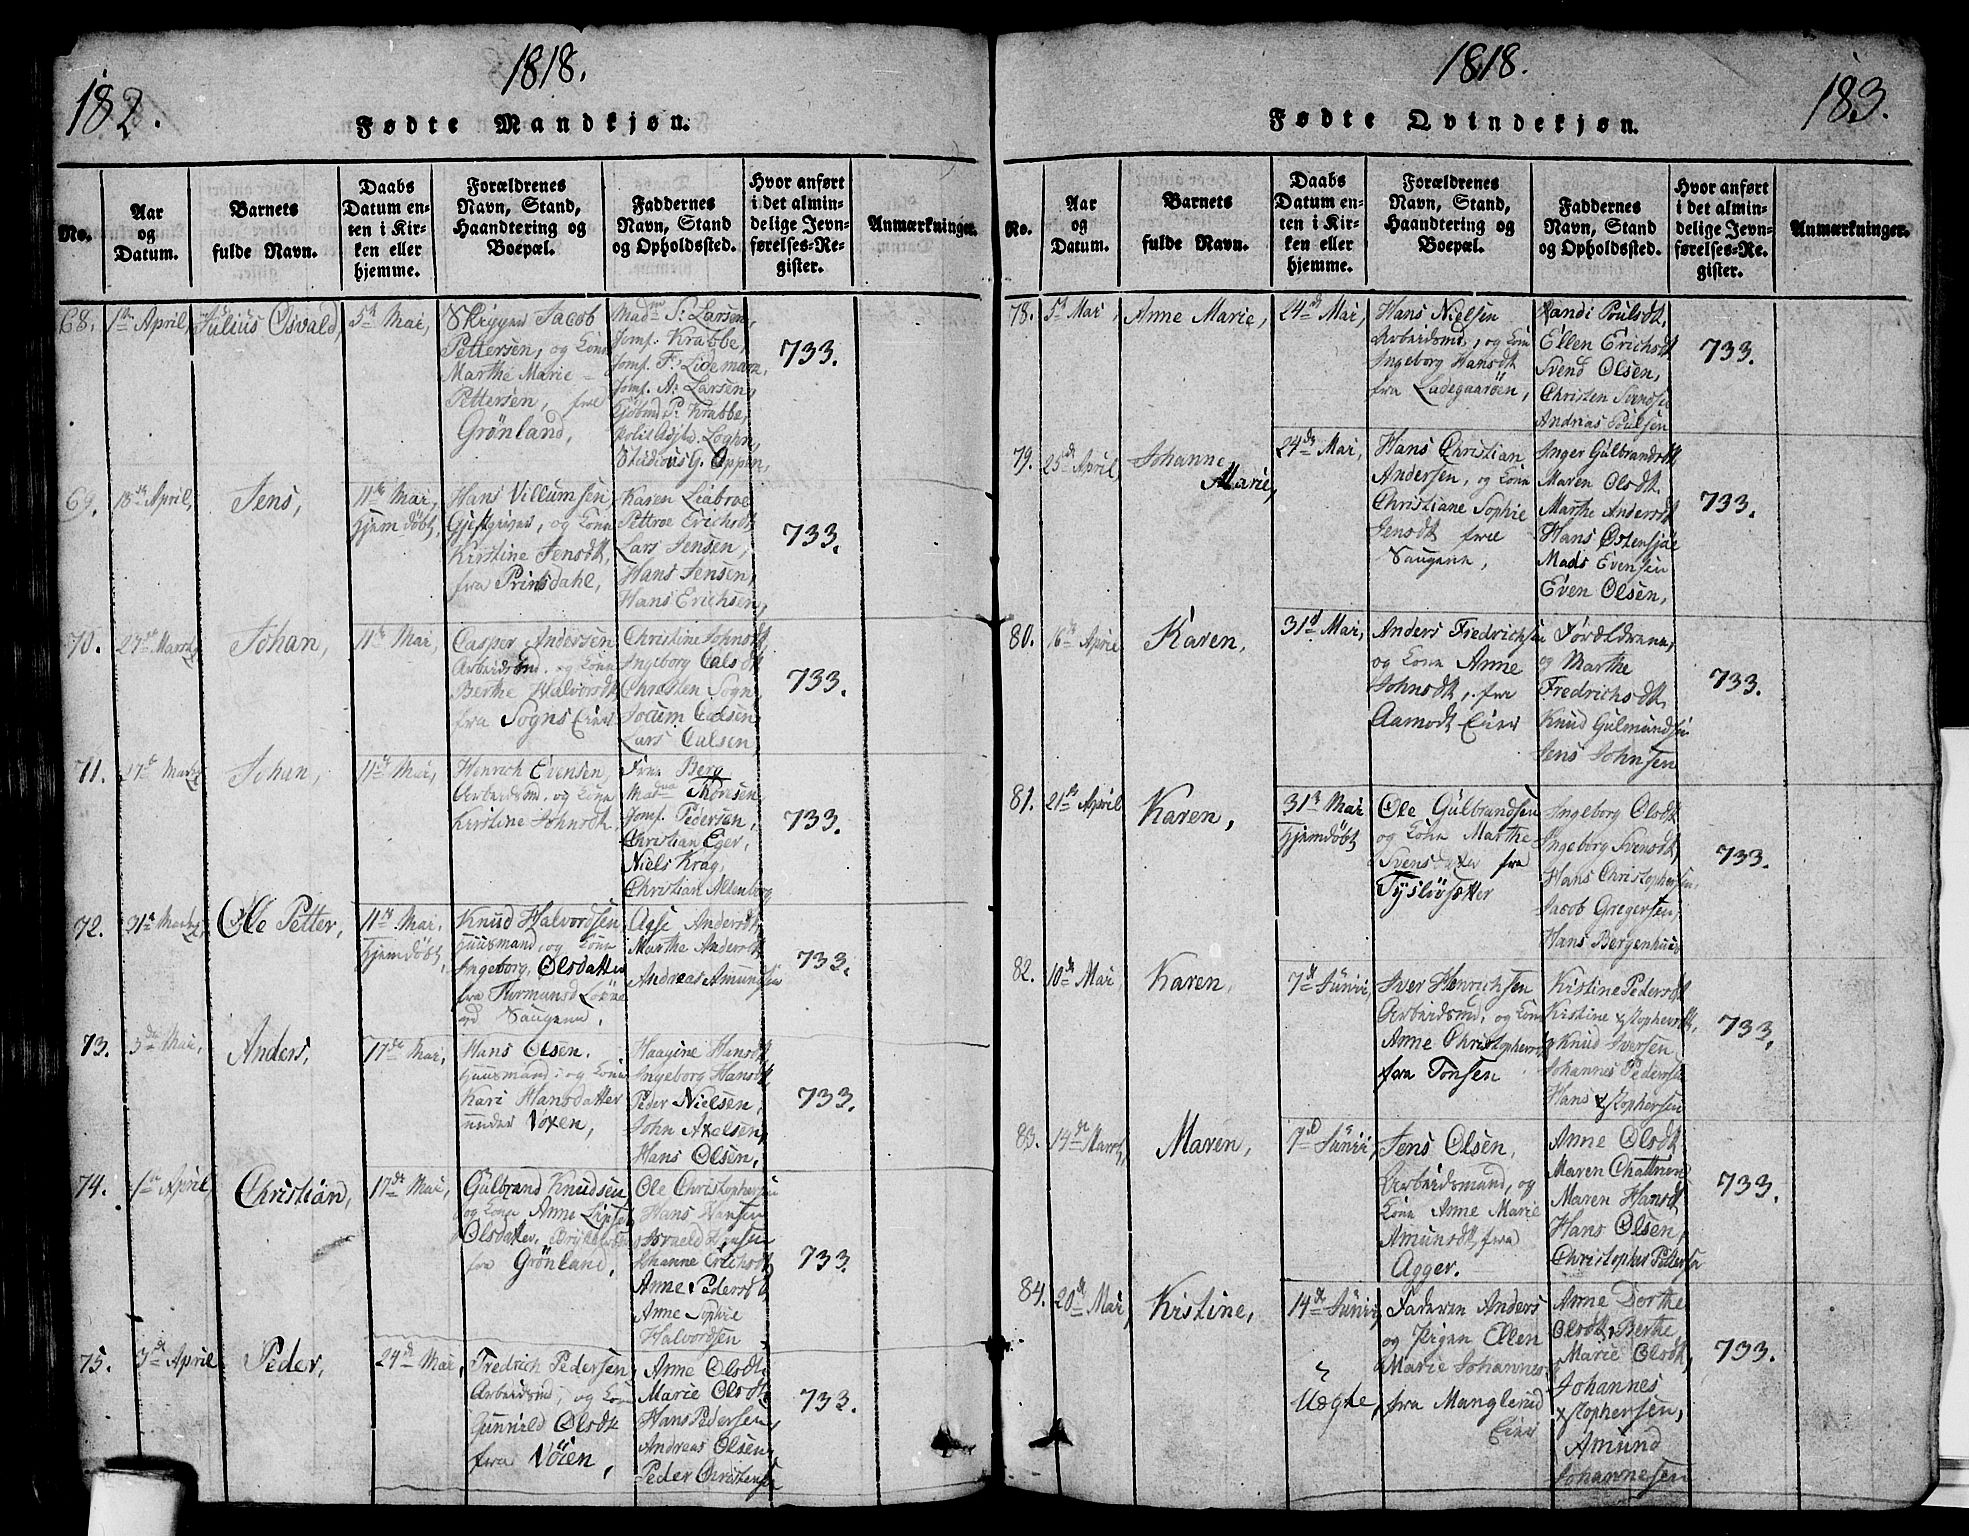 182.
1818.
Fødte Mandkjøn.
No.
Aar
og
Datum.
Barnets
fulde Navn.
Daabs
Datum en-
ten i Kir-
ken eller
hjemme.
Forældrenes
Navn, Stand,
Haandtering og
Boepæl.
Faddernes
Navn, Stand
og Opholdssted.
Hvor anført
i det almin-
delige Jevn-
førelses-Re-
gister.
Anmærkninger.
68.
1ste April,
Julius Osvald,
5te Mai,
Jacob
Pettersen, og Kone
Marthe Marie
Pettersen, fra
Grønland,
Madm P: Larsen,
Jomf. Krabbe,
Jomf. F: Lideman,
Jomf. A: Larsen,
P: Krabbe,
Loghn,
Studious G. Oppen,
733.
69.
18de April,
Jens,
11te Mai,
Hjemdøbt,
Hans Villumsen
Gjestgiver, og Kone
Kirstine Jensdt,
fra Prinsdahl,
Karen Liabroe
Pettroe Erichsdt
Lars Jensen,
Hans Jensen,
Hans Erichsen,
733.
70.
27de Martz
Johan,
11te Mai,
Casper Andersen
Arbeidsmd. og Kone
Berthe Halvorsdt
fra Sogns Eier
Christine Johnsdt,
Ingeborg Calsdt
Christen Sogn,
Jocum Calsen,
Lars Calsen,
733.
71.
17de Martz
Johan,
11te Mai,
Henrich Evensen,
Arbeidsmd. og Kone
Kirstine Johnsdt.
Frue Berg
Madme Thoresen,
Jomf. Pedersen,
Christian Eger,
Niels Krag,
Christian Altenborg
733.
72.
31te Martz
Ole Petter,
11te Mai,
Hjemdøbt,
Knud Halvordsen
Huusmand, og Kone
Ingeborg Olsdatter
fra Thormansd Løkke
ved Saugene,
Aase Andersdt,
Marthe Andersdt
Andreas Amundsen
733.
73.
3die Mai,
Anders,
17de Mai,
Hans Olsen,
Huusmand, og Kone
Kari Hansdatter
under Voxen,
Haagine Hansdt
Ingeborg Hansdt,
Peder Nielsen,
John Axelsen,
Hans Olsen,
733.
74.
1ste April,
Christian,
17de Mai,
Gulbrand Knudsen,
og Kone Anne Lipse
Olsdatter,
fra Grönland,
Ole Christophersen
Hans Hansen
Johanne Erichsdt,
Anne Pedersdt
Anne Sophie
Halvordsen
733.
75.
3die April
Peder,
24de Mai,
Fredrich Pedersen,
Arbeidsmd, og Kone
Gunnild Olsdt
fra Vöien,
Anne Olsdt
Marie Olsdt,
Hans Pedersen,
Andreas Olsen,
Peder Christensen
733.
1818.
183.
Fødte Qvindekjøn.
No.
Aar
og
Datum.
Barnets
fulde Navn.
Daabs
Datum en-
ten i Kir-
ken eller
hjemme.
Forældrenes
Navn, Stand,
Haandtering og
Boepæl.
Faddernes
Navn, Stand
og Opholdssted.
Hvor anført
i det almin-
delige Jevn-
førelses-Re-
gister.
Anmærkninger.
78.
5te Mai,
Anne Marie,
24de Mai,
Hans Nielsen
Arbeidsmd, og Kone
Ingeborg Hansdt
fra Ladegaarsöen,
Randi Poulsdt,
Ellen Erichsdt
Svend Olsen,
Christen Svendsen
Andrias Poulsen
733.
79.
25de April,
Johanne
Marie,
24de Mai,
Hans Christian
Andersen, og Kone
Christiane Sophie
Jensdt fra
Saugene,
Inger Gulbrandsdt
Maren Olsdt.
Marthe Andersdt
Hans Østensjøe
Mads Evensen
Even Olsen,
733.
80.
16de April
Karen,
31te Mai,
Anders Fredrichsen
og Kone Anne
Johnsdt, fra
Aamodt Eier
Foreldrene,
og Marthe
Fredrichsdt,
Knud Gulmundsen
Jens Johnsen
733.
81.
21de April
Karen,
31te Mai
Hjemdöbt
Ole Gulbrandsen
og Kone Marthe
Svensdatter fra
Tyslivsætter
Ingeborg Olsdt
Ingeborg Svensdt,
Hans Christophersen,
Jacob Gregersen,
Hans Bergenhuus
733.
82.
10de Mai,
Karen,
7de Juni,
Iver Henrichsen
Arbeidsmd, og Kone
Anne Christophersdt
fra Tonsen
Kistine Pedersdt
Kistine Xstophersdt,
Knud Iversen
Johannes Pedersen
Hans Xstophersen
733.
83.
14de Martz,
Maren,
7de Juni,
Jens Olsen,
Arbeidsmand, og
Kone Anne Marie
Amunsdt fra
Agger.
Anne Olsdt
Maren Chattrine
Maren Hansdt
Hans Olsen,
Christopher Pettersen
733.
84.
20de Mai,
Kistine,
14de Juni,
Uægte,
Faderen Anders
og Pigen Ellen
Marie Johannes
fra Manglerud
Eier
Anne Dorthe
Olsdt, Berthe
Marie Olsdt,
Johannes
Xstophersen,
Amund
Johannesen
733.